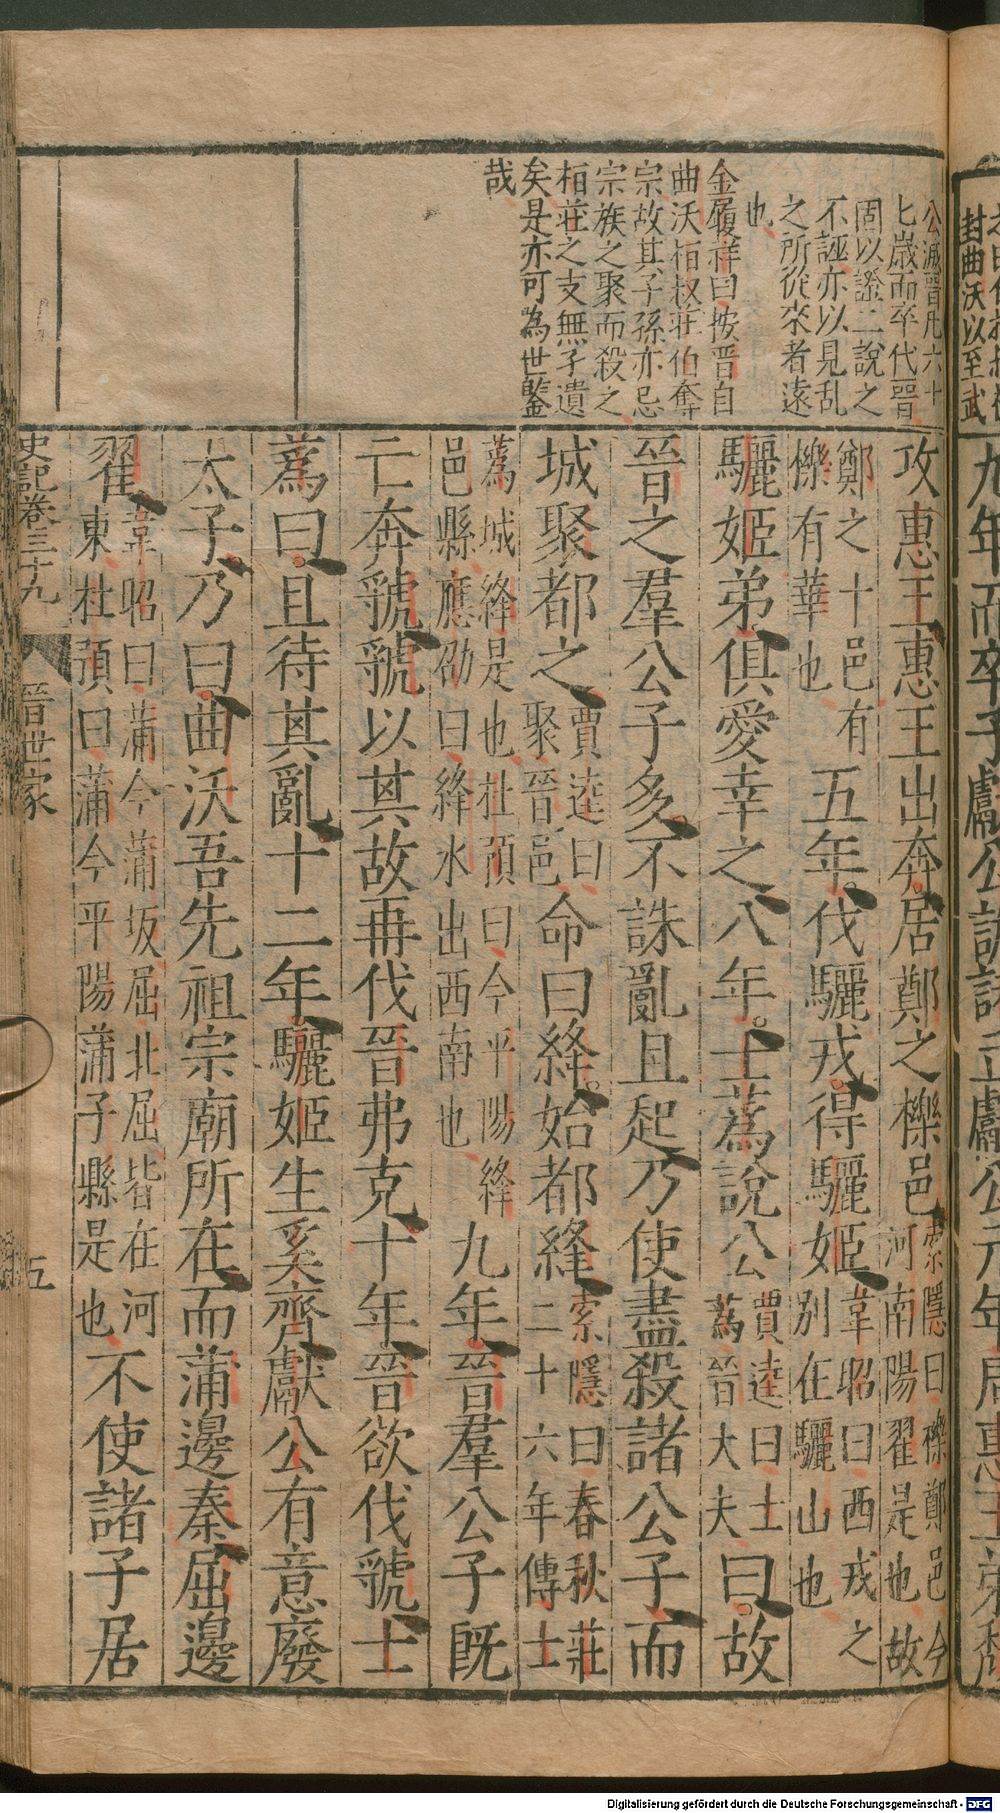 公滅晉凡六十
七歲而卒代晉
固以證二說之
不誣亦以見乱
之所從來者遠
也
金履祥曰按晉自
曲沃桓叔莊伯奪
宗故其子孫亦忌
宗族之聚而殺之
桓莊之支無孑遺
矣是亦可為世鑒
哉
封曲沃以至武
九年而卒子獻公詭諸立獻公元年周惠王弟
攻惠王惠王出奔居鄭之櫟邑索隱曰櫟鄭邑今河南陽翟是也故
鄭之十邑有櫟有華也五年伐驪戎得驪姬韋昭曰西戎之別在驪山也
驪姬弟俱愛幸之八年士蒍說公賈逵曰士蒍晉大夫曰故
晉之羣公子多不誅亂且起乃使盡殺諸公子而
城聚都之賈逵曰聚晉邑命曰絳始都絳索隱曰春秋莊二十六年傳士
蒍城絳是也杜預曰今平陽絳邑縣應劭曰絳水出西南也九年晉羣公子既
亡奔虢虢以其故再伐晉弗克十年晉欲伐虢士
蒍曰且待其亂十二年驪姬生奚齊獻公有意廢
太子乃曰曲沃吾先祖宗廟所在而蒲邊秦屈邊
翟韋昭曰蒲今蒲坂屈北屈皆在河東杜預曰蒲今平陽蒲子縣是也不使諸子居
史記卷三十九 晉世家 五
Digitalisierung gefördert durch die Deutsche Forschungsgemeinschaft - DFG